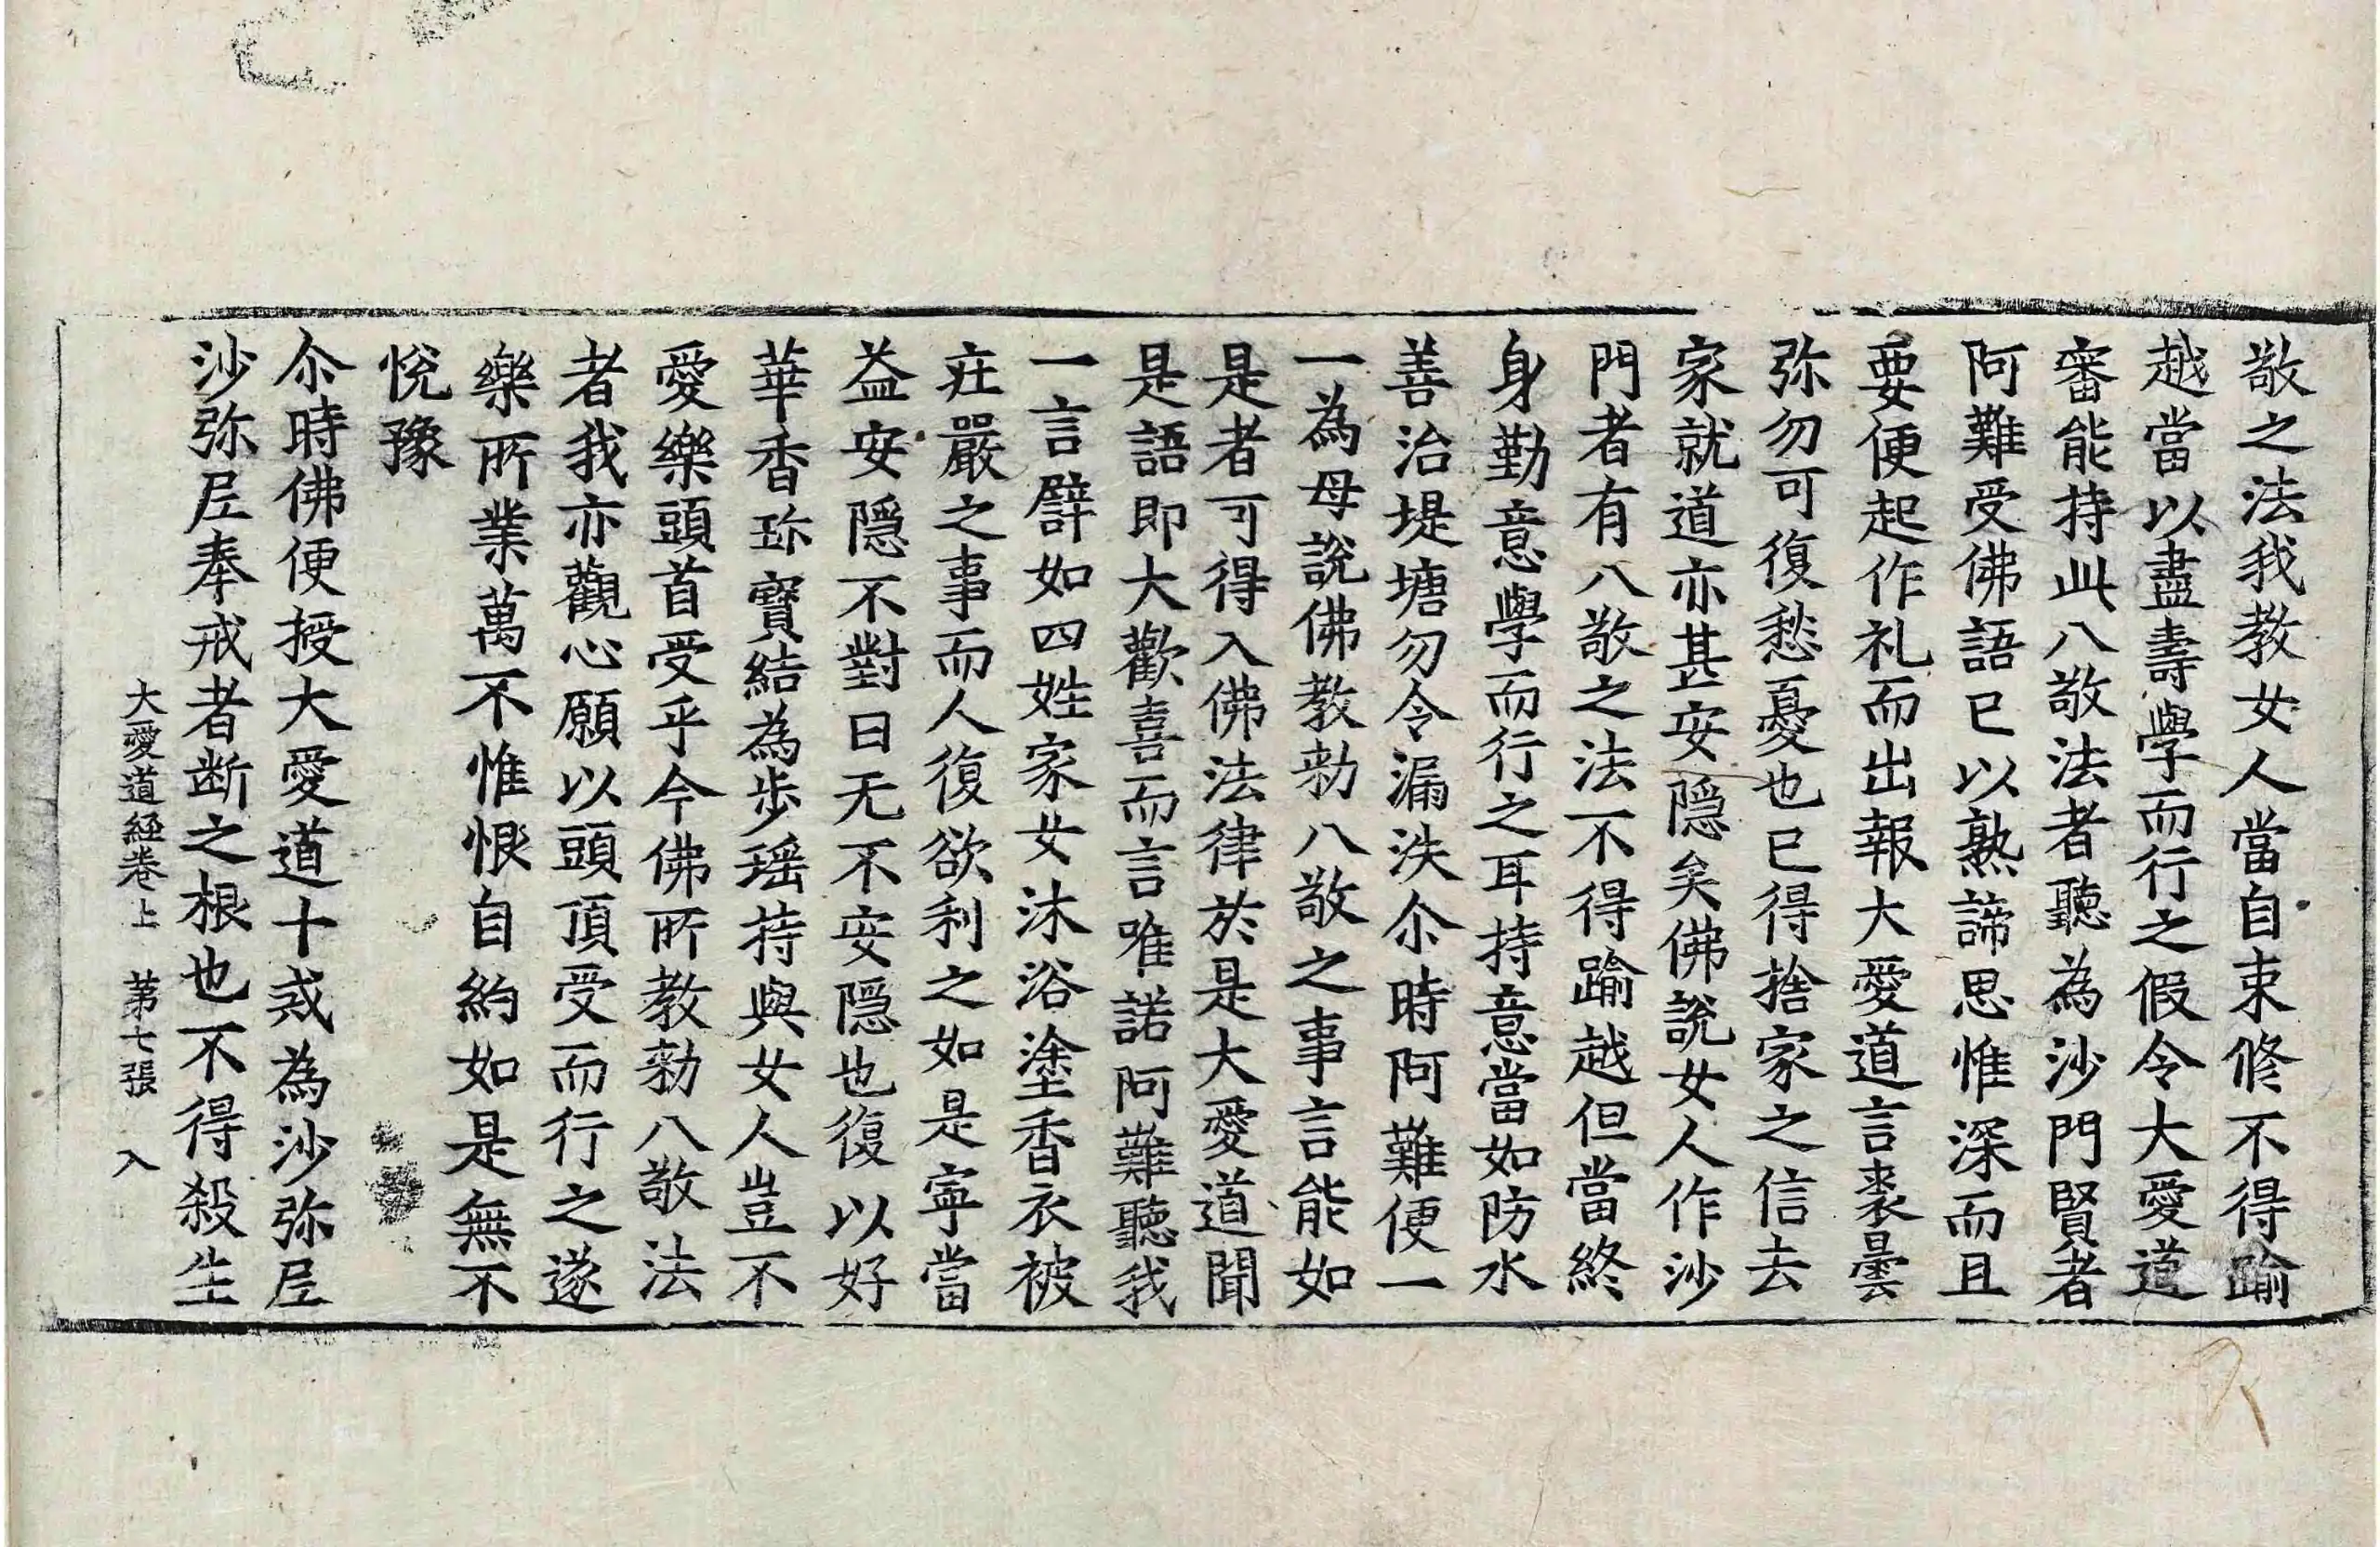 敬之法我教女人當自束脩不得踰
越當以盡壽學而行之假令大愛道
審能持此八敬法者聽為沙門賢者
阿難受佛語已以熟諦思惟深而且
要便起作礼而出報大愛道言裘曇
弥勿可復愁憂也已得捨家之信去
家就道亦甚安隠矣佛說女人作沙
門者有八敬之法不得踰越但當終
身勤意學而行之耳持意當如防水
善治堤塘勿令漏泆尒時阿難便一
一為母說佛教勑八敬之事言能如
是者可得入佛法律於是大愛道聞
是語即大歡喜而言唯諾阿難聽我
一言譬如四姓家女沐浴塗香衣被
莊嚴之事而人復欲利之如是寧當
益安隠不對曰无不安隠也復以好
華香珎寶結為步瑶持與女人豈不
愛樂頭首受乎今佛所教勑八敬法
者我亦觀心願以頭頂受而行之遂
樂所業萬不惟恨自約如是無不
悅豫
尒時佛便授大愛道十戒為沙弥尼
沙弥尼奉戒者断之根也不得殺生
大愛道經卷上 第七張 入